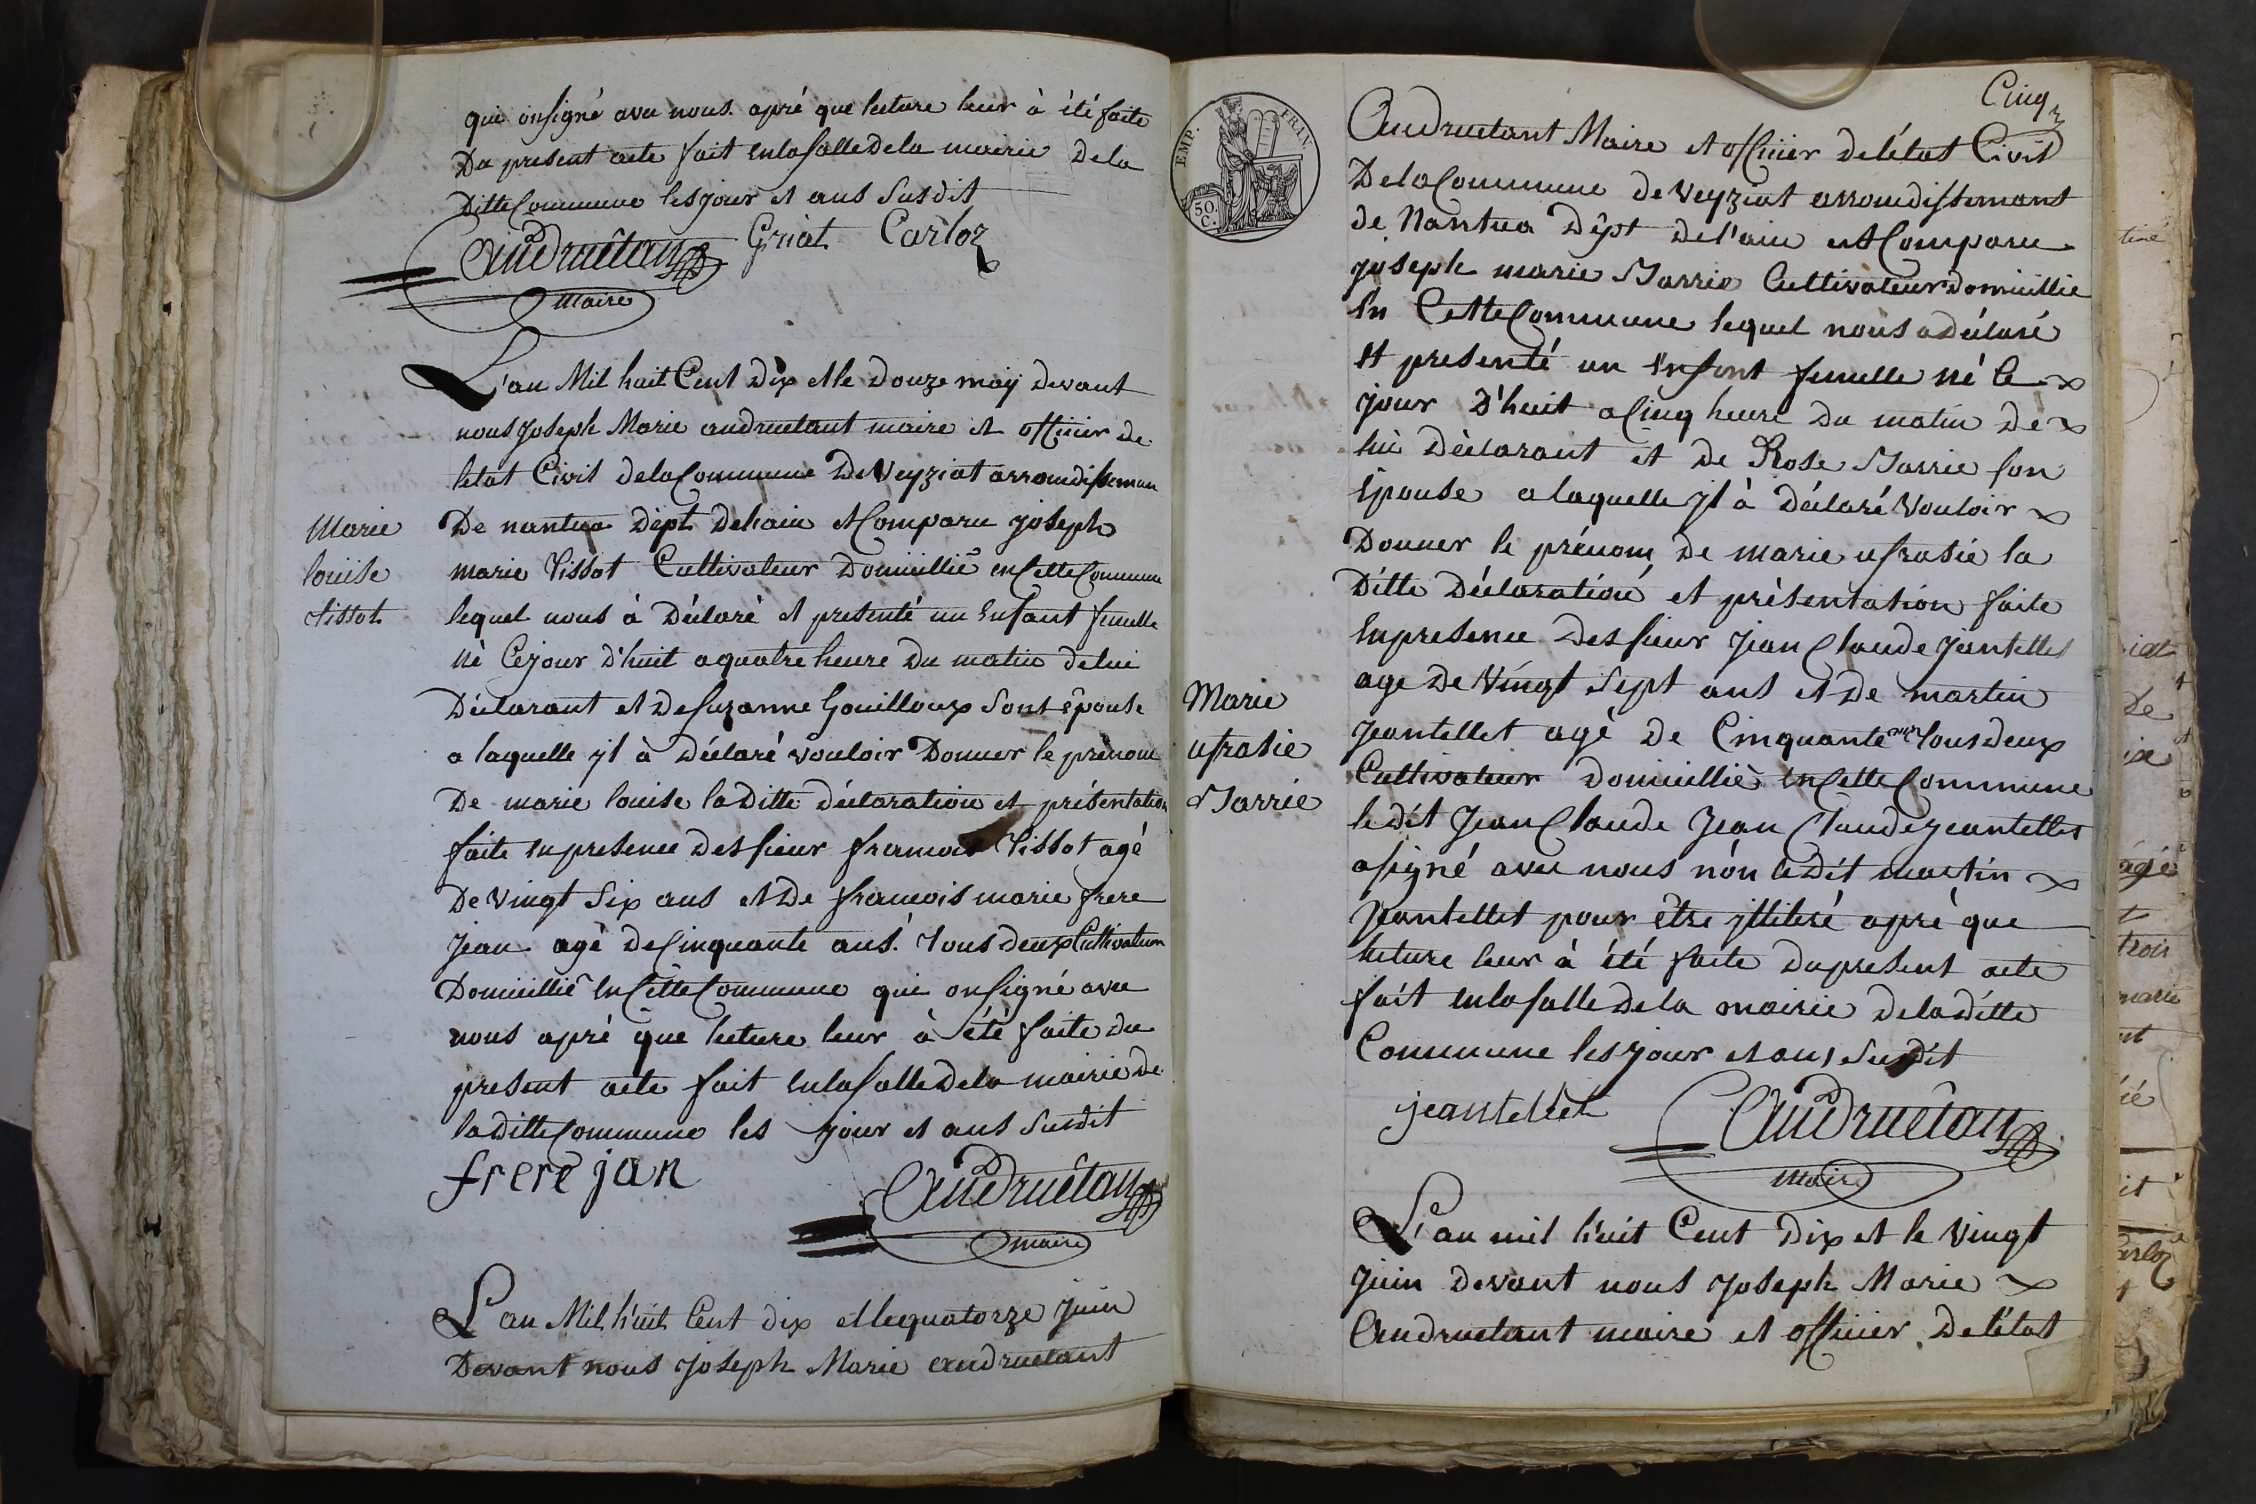 qui onsigné avec nous apré que lecture leur à été faite
Du present acte fait enlasalle Dela mairie Dela
Ditte Commune les jour et ans Susdit
Andruétan Griot Carloz
maire
L'an Mil huit Cent Dix et le Douze maÿ devant
nous Joseph Marie andruetant maire et officier de
letat Civil delaCommune De Veyziat arrondisseman
Marie
louise
tissot
De nantua Dépt Delain etComparu joseph
marie tissot Cultivateur Domicillié enCette Commune
lequel nous à Déclaré et presenté un Enfant femelle
né Cejour d'huit aquatre heure Du matin delui
Déclarant et De Suzanne Gouilloux Sont épouse
a laquelle jl à Déclaré vouloir Donner le prénom
De marie louise la Ditte déclaration et présentation
faite enpresence Des sieur francois tissot agé
De vingt Six ans et De francois marie frere
Jean agé deCinquante ans. tous deux Cultivateur
Domicillié enCette Commune qui onsigné avec
nous apré que lecture leur à été faite du
present acte fait enlasalle Dela mairie de
la ditte Commune les jour et ans Susdit
frere jan Andruétan
maire
L'an Mil huit Cent dix et lequatorze Juin
Devant nous Joseph Marie andruetant
EMP. FRAN.
50. C.
Cinq
Andruetant Maire et officier de létat Civil
De la Commune de Veyziat arrondissemant
de Nantua Dépt de l'ain et Comparu
joseph marie Cultivateur Domicillié
En Cette Commune lequel nous adéclaré
et presenté un Enfant femelle né Ce
jour D'huit aCinq heure Du matin De
lui Déclarant et De Rose Son
Epouse a laquelle jl à Déclaré Vouloir
Donner le prénom De marie ufrasie la
Ditte Déclaration et présentation faite
Enpresence Des sieur Jean Claude Jeantellet
age De Vingt Sept ans et De martin
Jeantellet agé De Cinquante ans tous deux
Cultivateur Domicillié enCette Commune
Marie
ufrasie
le dit Jean Claude Jean Claude jeantellet
asigné avec nous nón ledit martin
Jeantellet pour être jlliteré apré que
lecture leur à été faite Du present acte
fait enlasalle Dela mairie dela ditte
Commune les jour et ans Susdit
jeantellet Andruétan
maire
L'an mil huit Cent Dix et le Vingt
Juin Devant nous Joseph Marie
Andruetant maire et officier De létat